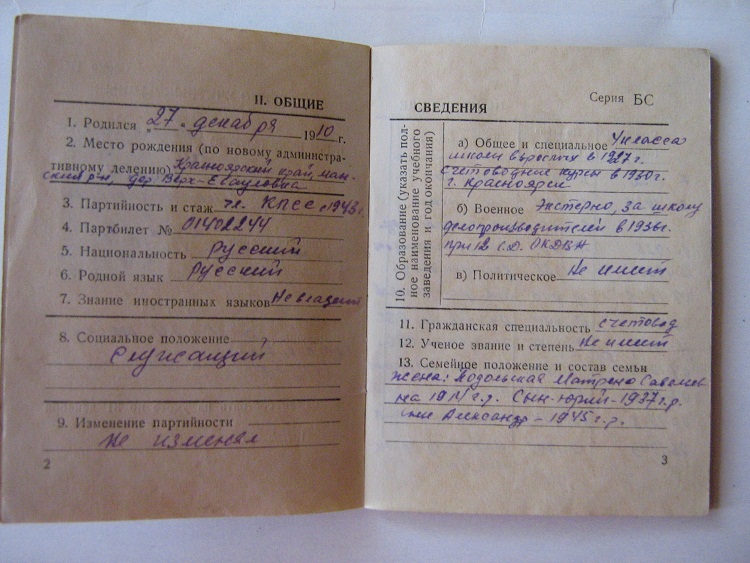 II. ОБЩИЕ
1. Родился „27" декабря 1910 г.
2. Место рождения (по новому административному делению) Красноярский край, Манский р-н, дер.
3. Партийность и стаж чл. КПСС с 1943 г.
4. Партбилет № 01402244
5. Национальность русский
6. Родной язык русский
7. Знание иностранных языков Не владеет
8. Социальное положение
Служащий
9. Изменение партийности
Не изменял
2
Серия БС
СВЕДЕНИЯ
10. Образование (указать полное наименование учебного заведения и год окончания)
а) Общее и специальное 4 класса
школы взрослых в 1927 г.
Счетоводные курсы в 1930 г.
г. Красноярск
б) Военное Экстерно, за школу
делопроизводителей в 1936 г.
при 12 с.д. ОКДВА
в) Политическое Не имеет
11. Гражданская специальность счетовод
12. Ученое звание и степень Не имеет
13. Семейное положение и состав семьи
жена: Подольская Матрена
на 1914 г.р. Сын-Юрий-1937 г.р.
Александр-1945 г.р.
3